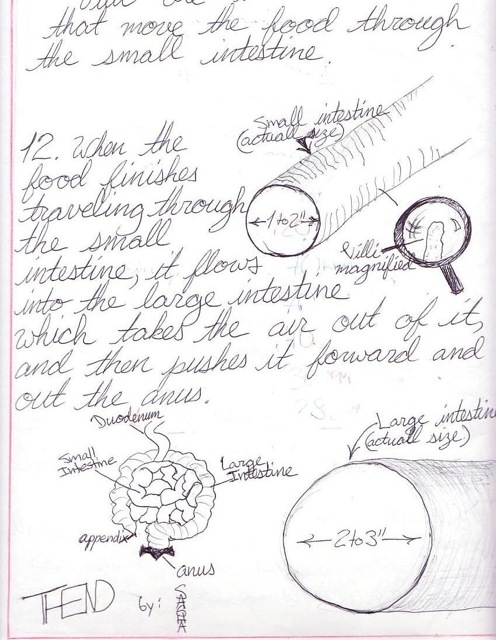 that move the food through
the small intestine.
Small intestine
(actuall size)
12. When the
food finishes
traveling through
the small
intestine, it flows
into the large intestine
which takes the air out of it,
and then pushes it forward and
out the anus.
1 to 2"
Villi
magnified
Duodenum
Small
Intestine
Large
Intestine
appendix
anus
Large intestine
(actuall size)
2 to 3"
THEND
by: